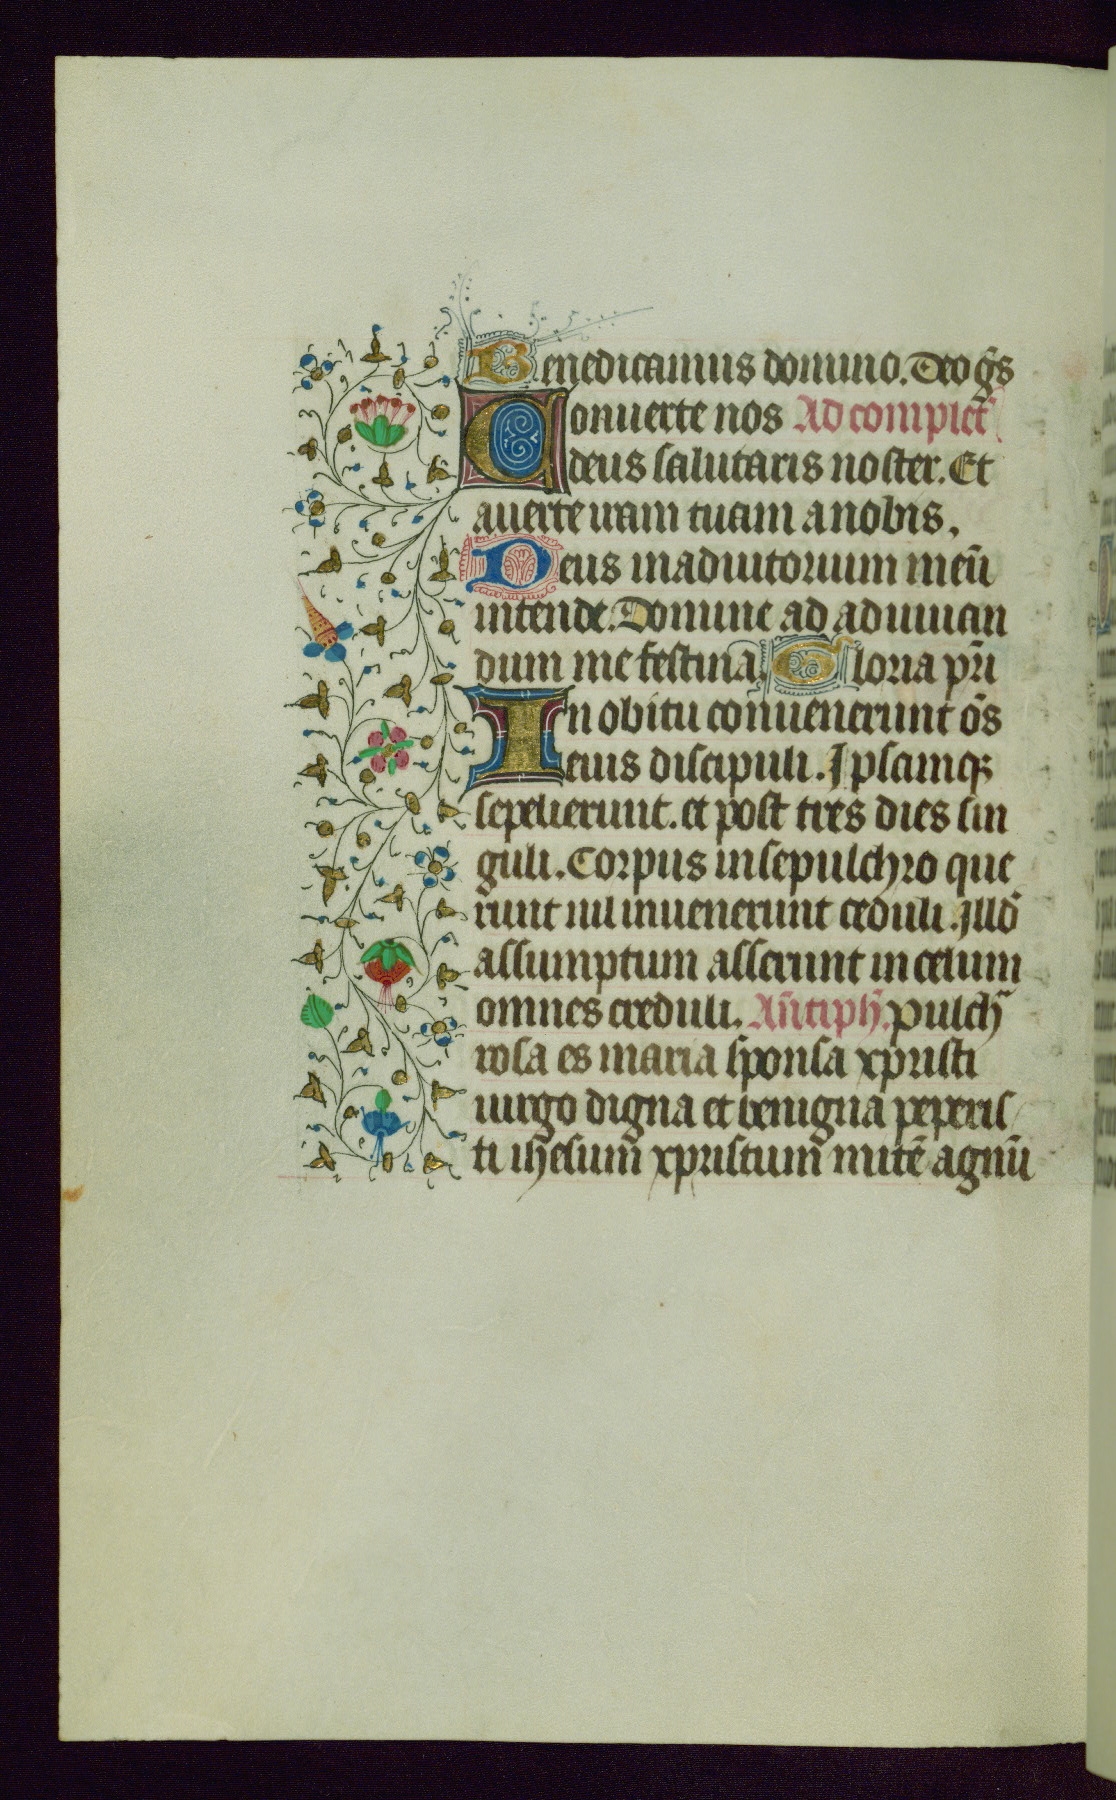 Benedicamus domino. Deo gr̃s
Conuerte nos Ad complet̃
deus salutaris noster. Et
auerte iram tuam a nobis.
Deus in adiutorium meū
intende. Domine ad adiuuan
dum me festina. Gloria pr̃i
In obitu conuenerunt ōs
eius discipuli. Ipsamqꝫ
sepelierunt. et post tres dies sin
guli. Corpus in sepulchro que
runt nil inuenerunt ceduli. Illd̄
assumptum asserunt in celum
omnes creduli. Añtiph̃. pulch̃
rosa es maria sponsa xpristi
uirgo digna et benigna peperis
ti ih̃esum̃ xpristum̃ mitē agnū